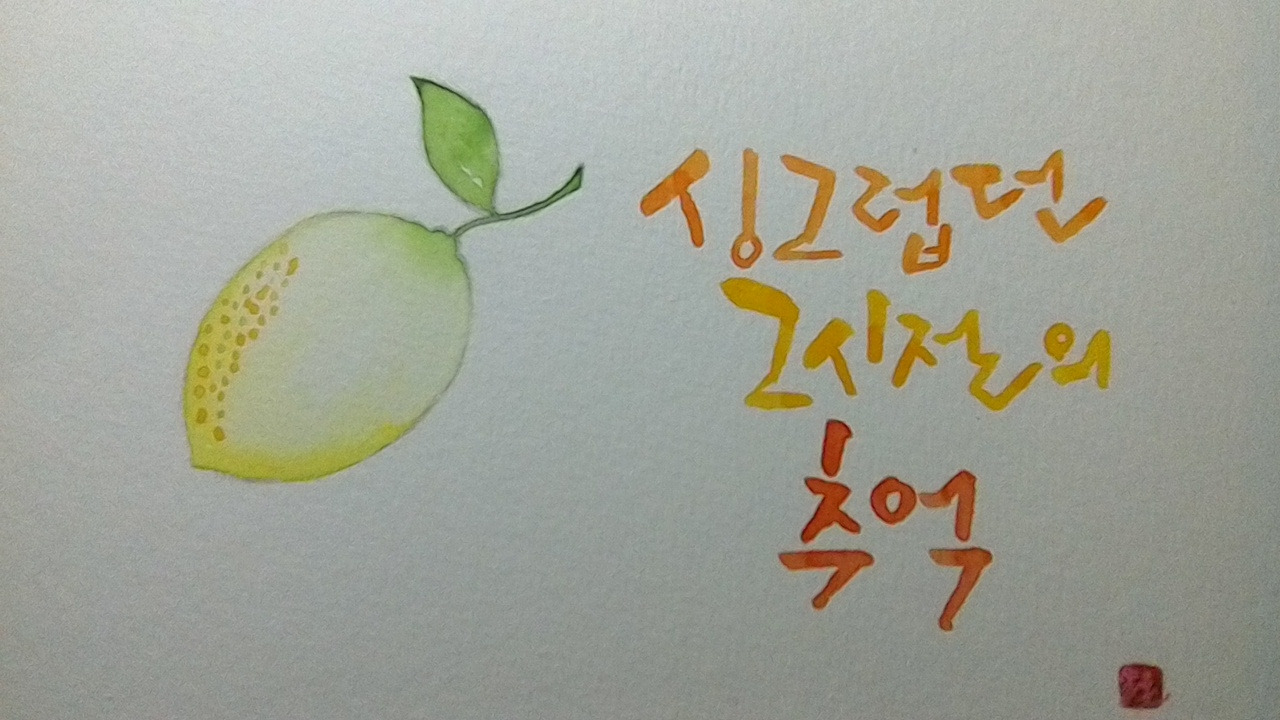 싱그럽던
그시절의
추억